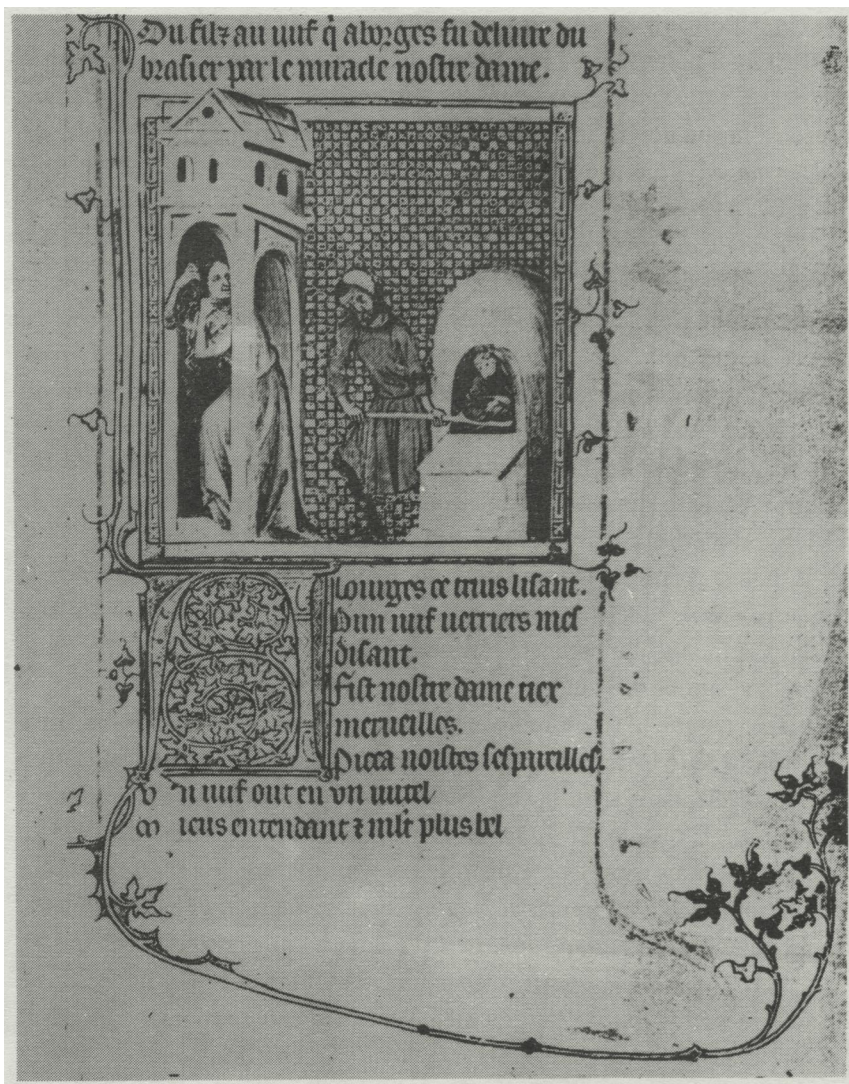 Du filz au iuif q̃ aborges fu deliure du
brasier par le miracle nostre dame.
bourges ce truis lisant.
Dun iuif uerriers mes
disant.
Fist nostre dame tiex
merueilles.
Pieca noistes ses pareilles.
v n iuif out en vn uitel
M ieus entendant ⁊ mĩt plus bel